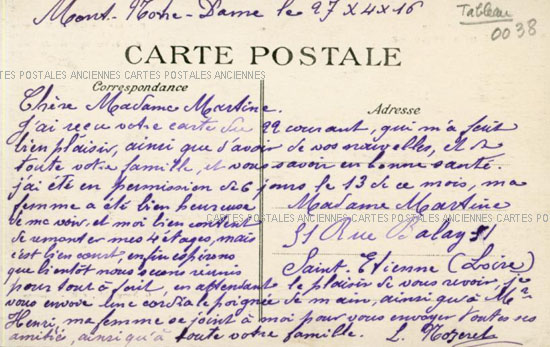 Mont-Notre-Dame le 27 X 4 X 16
Tableau
0038
CARTE POSTALE
CARTES POSTALES ANCIENNES CARTES POSTALES ANCIENNES
Correspondance
Adresse
Chère Madame Martine.
J'ai reçu votre carte du 22 courant, qui m'a fait
bien plaisir, ainsi que d'avoir de vos nouvelles, et de
toute votre famille, et vous savoir en bonne santé.
j'ai été en permission de 6 jours le 13 de ce mois, ma
femme a été bien heureuse
de me voir, et moi bien content
de remonter mes 4 étages, mais
c'est bien court, enfin espérons
que bientôt nous serons réunis
pour tout à fait, en attendant le plaisir de vous revoir, je
vous envoie une cordiale poignée de main, ainsi qu'à Mr
Henri, ma femme se joint à moi pour vous envoyer toutes ses
amitiés, ainsi qu'à toute votre famille. L.
Madame Martine
CARTES POSTALES ANCIENNES CARTES POSTALES ANCIENNES CARTES POS
51 Rue Balay 51
Saint-Etienne (Loire)